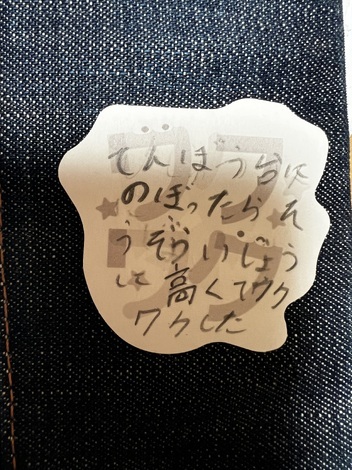 てんぼう台に
のぼったらそ
うぞういじょう
に高くてワク
ワクした